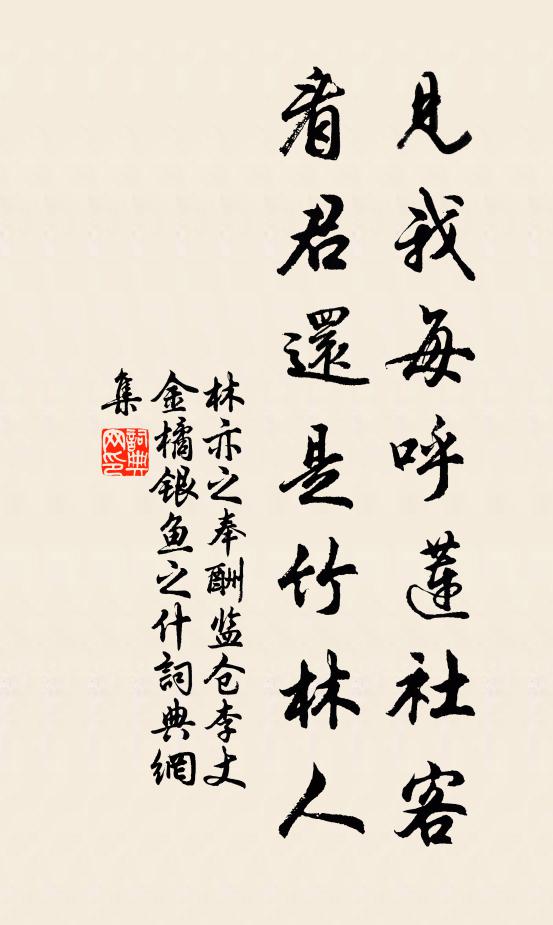 見我每呼蓮社客
看君還是竹林人
林亦之奉酬监仓李丈
金橘银鱼之什詞典網
集
詞典
网印